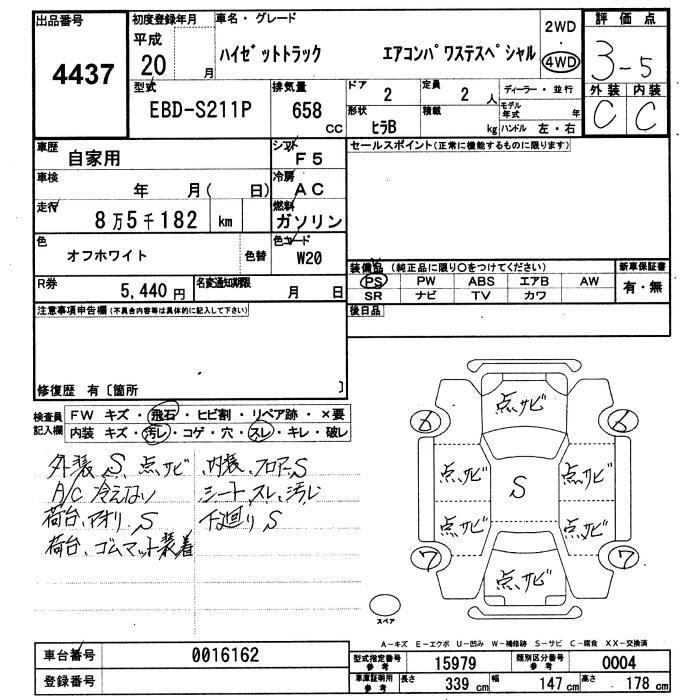 出品番号 初度登録年月 車名・グレード 2WD 評価点
4437 平成 20 月 ハイゼットトラック エアコンパワステスペシャル 4WD 3-5
型式 排気量 ドア 定員 ディーラー・並行 外装 内装
EBD-S211P 658 cc 2 2 人 モデル年式 年 C C
形状 ヒラB 積載 kg ハンドル 左・右
車歴 自家用 シフト F5 セールスポイント(正常に機能するものに限ります)
車検 年 月( 日) 冷房 AC
走行 8万5千182 km 燃料 ガソリン
色 オフホワイト 色替 色コード W20
装備品 (純正品に限り○をつけてください) 新車保証書
R券 5,440円 名変通知期限 月 日 PS PW ABS エアB AW 有・無
SR ナビ TV カワ
注意事項申告欄(不具合内容等は具体的に記入して下さい) 後日品
修復歴 有〔箇所 〕
検査員記入欄 FW キズ・飛石・ヒビ割・リペア跡・×要
内装 キズ・汚レ・コゲ・穴・スレ・キレ・破レ
外装 S、点サビ 内装、フロアーS
A/C 冷えない シート、スレ、汚レ
荷台、アオリ、S 下廻り S
荷台、ゴムマット装着
点、サビ
6 6
点、サビ S 点、サビ
点、サビ 点、サビ
7 7
点、サビ
スペア
A-キズ E-エクボ U-凹み W-補修跡 S-サビ C-腐食 XX-交換済
車台番号 0016162 型式指定番号 参考 15979 類別区分番号 参考 0004
登録番号 車庫証明用 参考 長さ 339 cm 幅 147 cm 高さ 178 cm